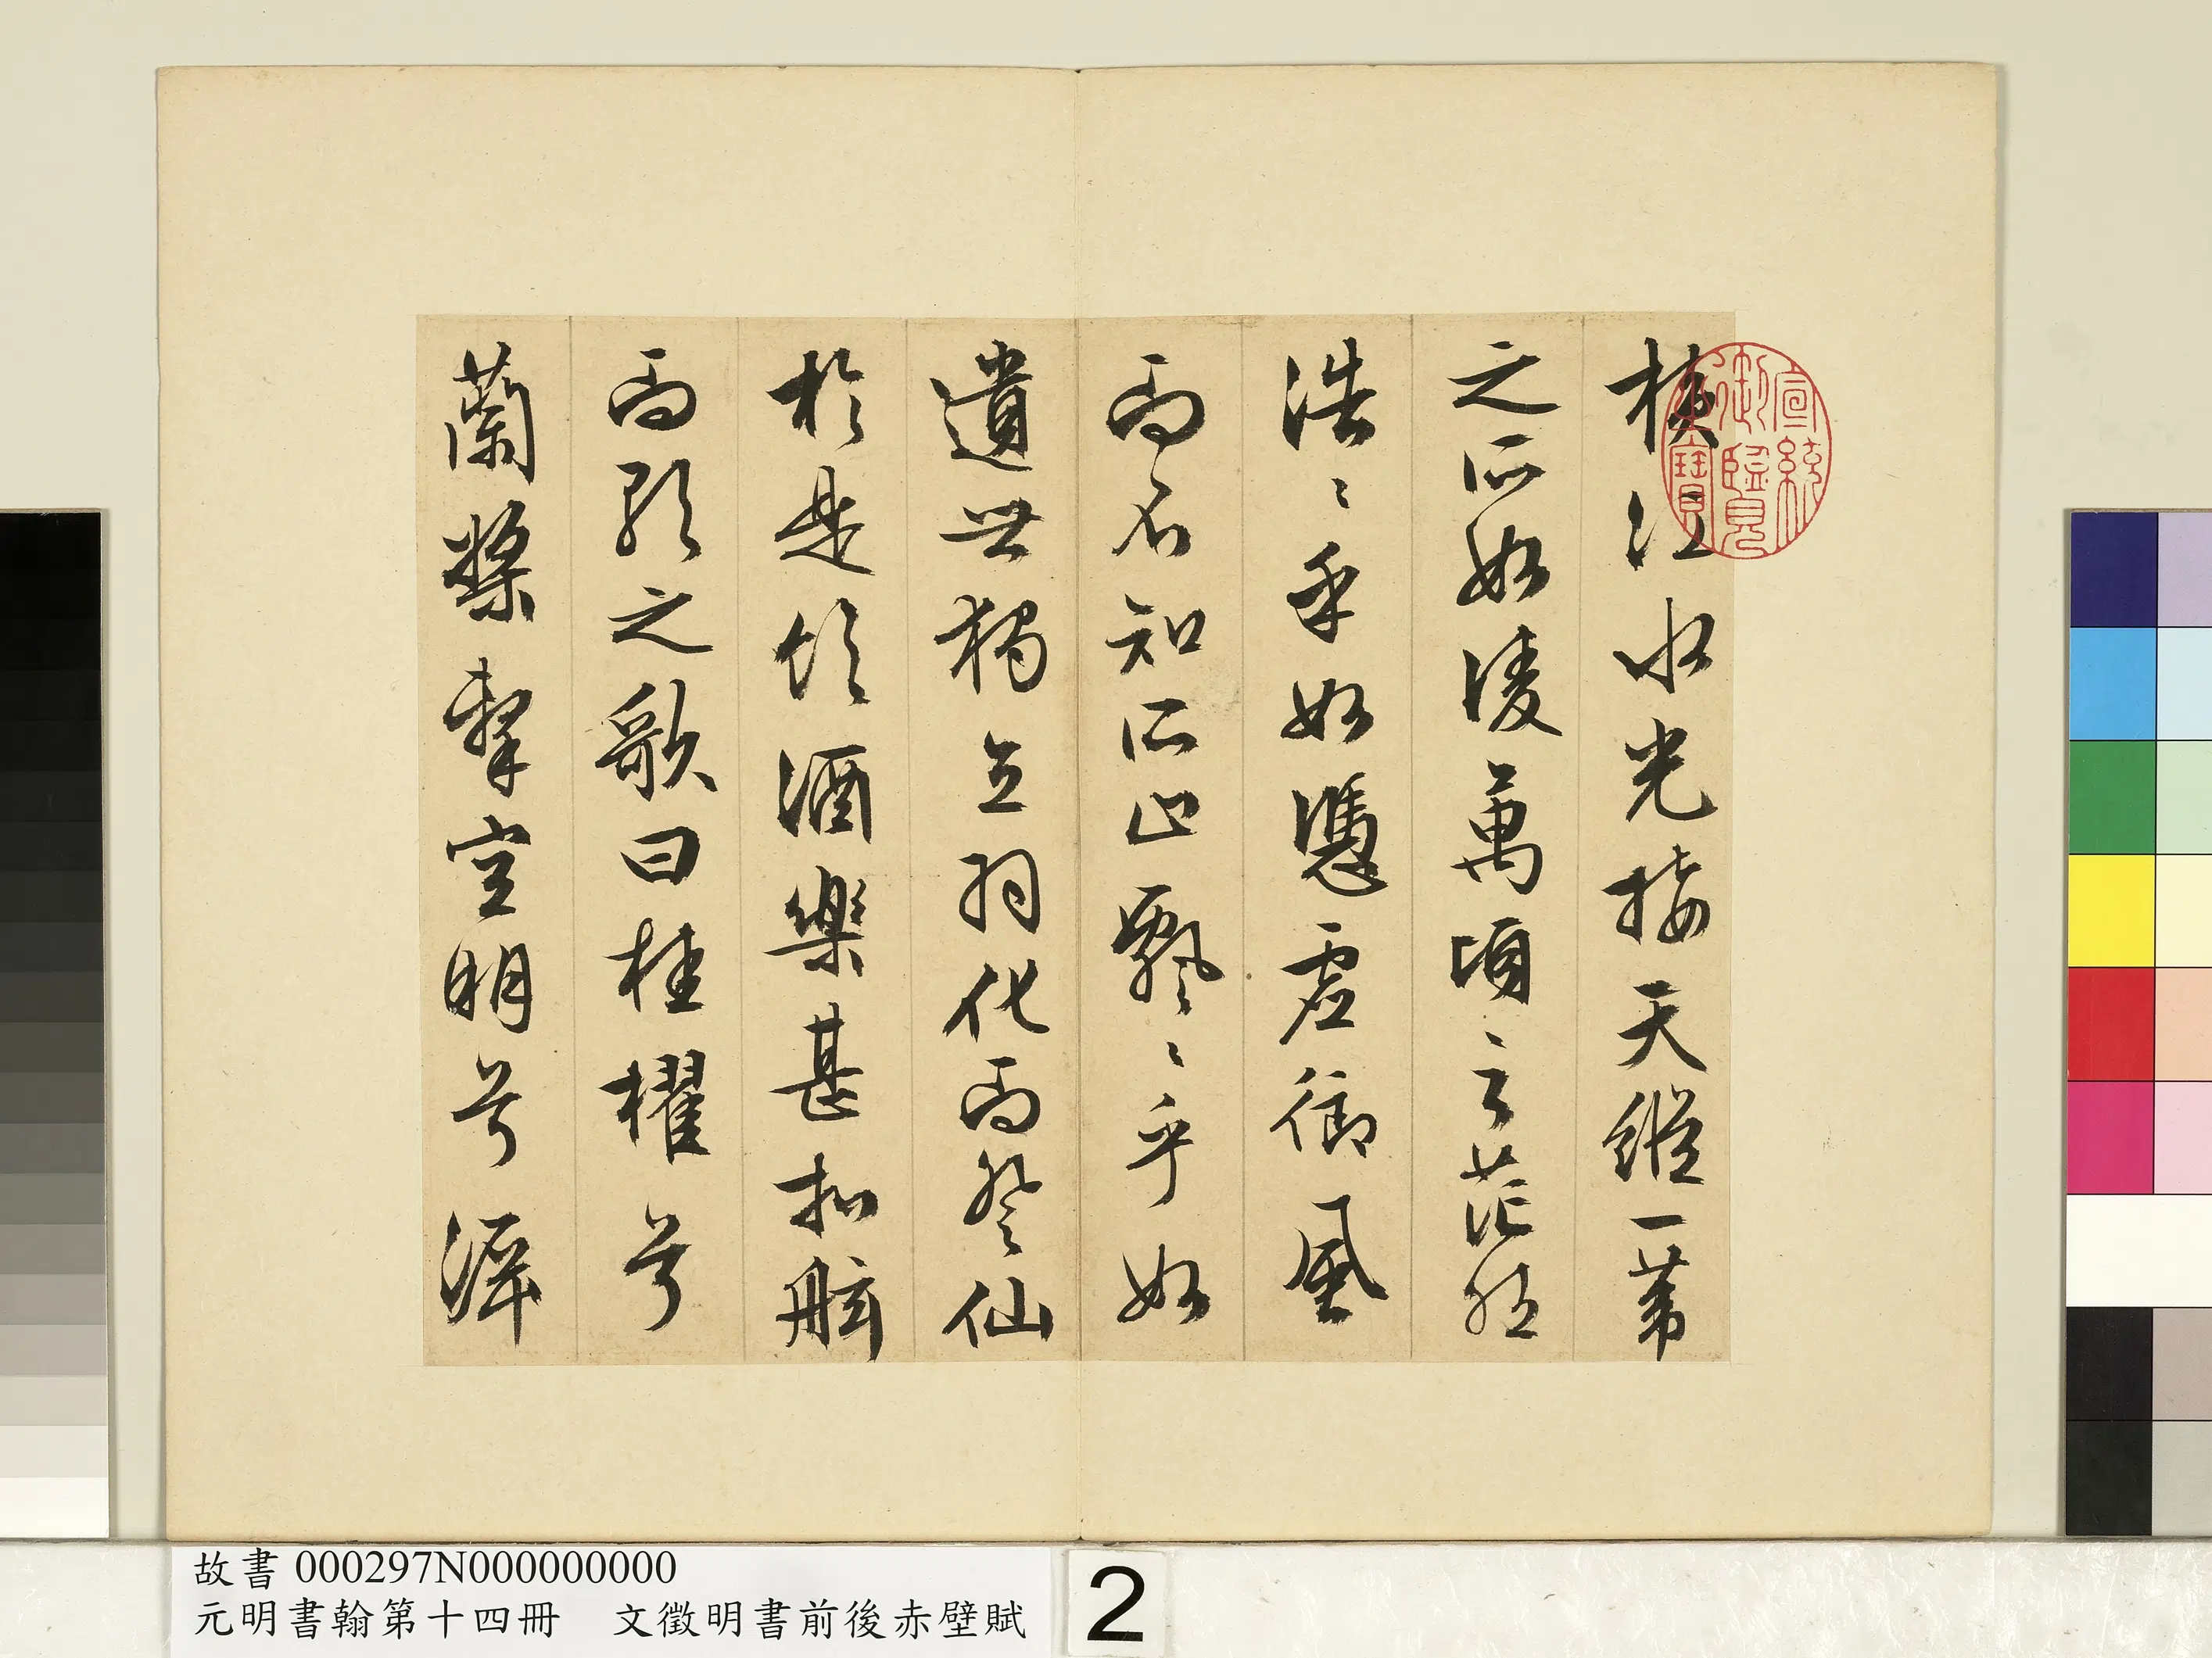 橫江水光接天縱一葦
之所如凌萬頃之茫然
浩〻乎如憑虛御風
而不知所止飄〻乎如
遺世獨立羽化而登仙
於是飲酒樂甚扣舷
而歌之歌曰桂櫂兮
蘭槳擊空明兮泝
宣統御覽之寶
故書 000297N000000000
元明書翰第十四冊 文徵明書前後赤壁賦
2